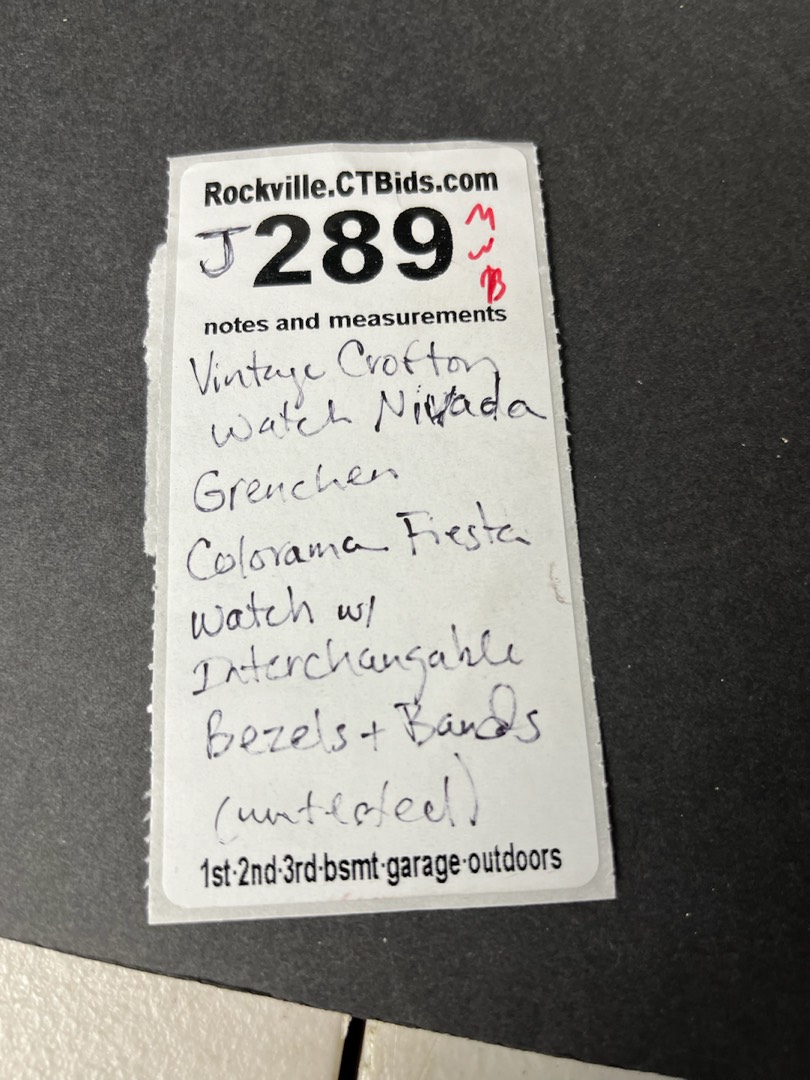 Rockville.CTBids.com
J289 MWB
notes and measurements
Vintage Crofton
Watch Nivada
Grenchen
Colorama Fiesta
Watch w/
Interchangable
Bezels + Bands
(untested)
1st·2nd·3rd·bsmt·garage·outdoors